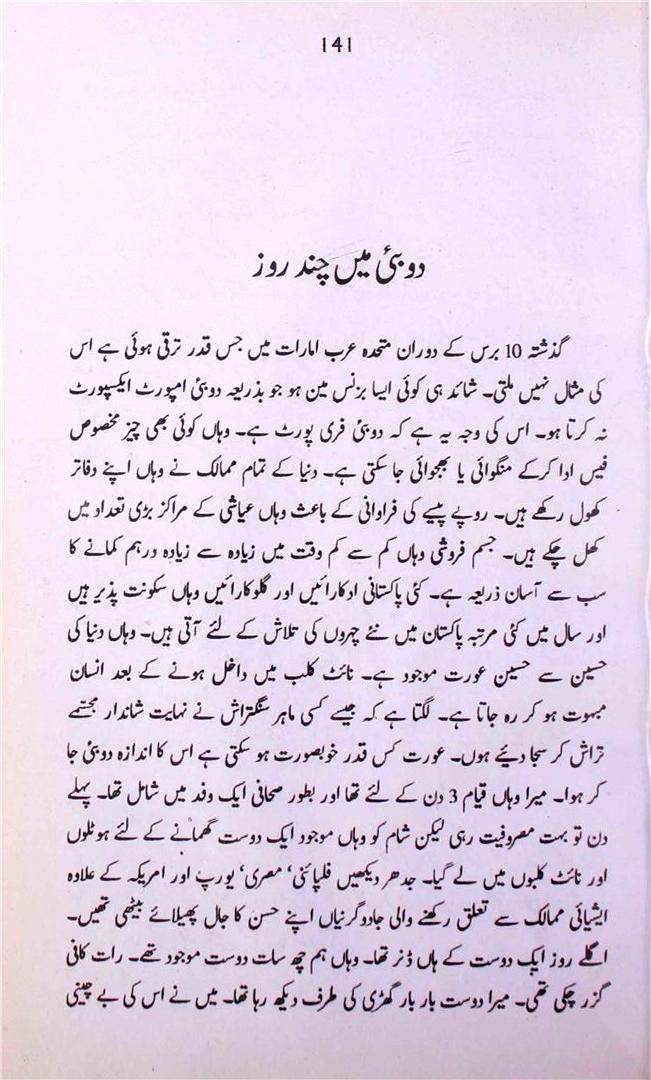 141
دوبئی میں چند روز
گذشتہ 10 برس کے دوران متحدہ عرب امارات میں جس قدر ترقی ہوئی ہے اس
کی مثال نہیں ملتی۔ شائد ہی کوئی ایسا بزنس مین ہو جو بذریعہ دوبئی امپورٹ ایکسپورٹ
نہ کرتا ہو۔ اس کی وجہ یہ ہے کہ دوبئی فری پورٹ ہے۔ وہاں کوئی بھی چیز مخصوص
فیس ادا کرکے منگوائی یا بھجوائی جا سکتی ہے۔ دنیا کے تمام ممالک نے وہاں اپنے دفاتر
کھول رکھے ہیں۔ روپے پیسے کی فراوانی کے باعث وہاں عیاشی کے مراکز بڑی تعداد میں
کھل چکے ہیں۔ جسم فروشی وہاں کم سے کم وقت میں زیادہ سے زیادہ درہم کمانے کا
سب سے آسان ذریعہ ہے۔ کئی پاکستانی اداکارائیں اور گلوکارائیں وہاں سکونت پذیر ہیں
اور سال میں کئی مرتبہ پاکستان میں نئے چہروں کی تلاش کے لئے آتی ہیں۔ وہاں دنیا کی
حسین سے حسین عورت موجود ہے۔ نائٹ کلب میں داخل ہونے کے بعد انسان
مبہوت ہو کر رہ جاتا ہے۔ لگتا ہے کہ جیسے کسی ماہر سنگتراش نے نہایت شاندار مجسمے
تراش کر سجا دیئے ہوں۔ عورت کس قدر خوبصورت ہو سکتی ہے اس کا اندازہ دوبئی جا
کر ہوا۔ میرا وہاں قیام 3 دن کے لئے تھا اور بطور صحافی ایک وفد میں شامل تھا۔ پہلے
دن تو بہت مصروفیت رہی لیکن شام کو وہاں موجود ایک دوست گھمانے کے لئے ہوٹلوں
اور نائٹ کلبوں میں لے گیا۔ جدھر دیکھیں فلپائنی‘ مصری‘ یورپ اور امریکہ کے علاوہ
ایشیائی ممالک سے تعلق رکھنے والی جادوگرنیاں اپنے حسن کا جال پھیلائے بیٹھی تھیں۔
اگلے روز ایک دوست کے ہاں ڈنر تھا۔ وہاں ہم چھ سات دوست موجود تھے۔ رات کافی
گزر چکی تھی۔ میرا دوست بار بار گھڑی کی طرف دیکھ رہا تھا۔ میں نے اس کی بے چینی